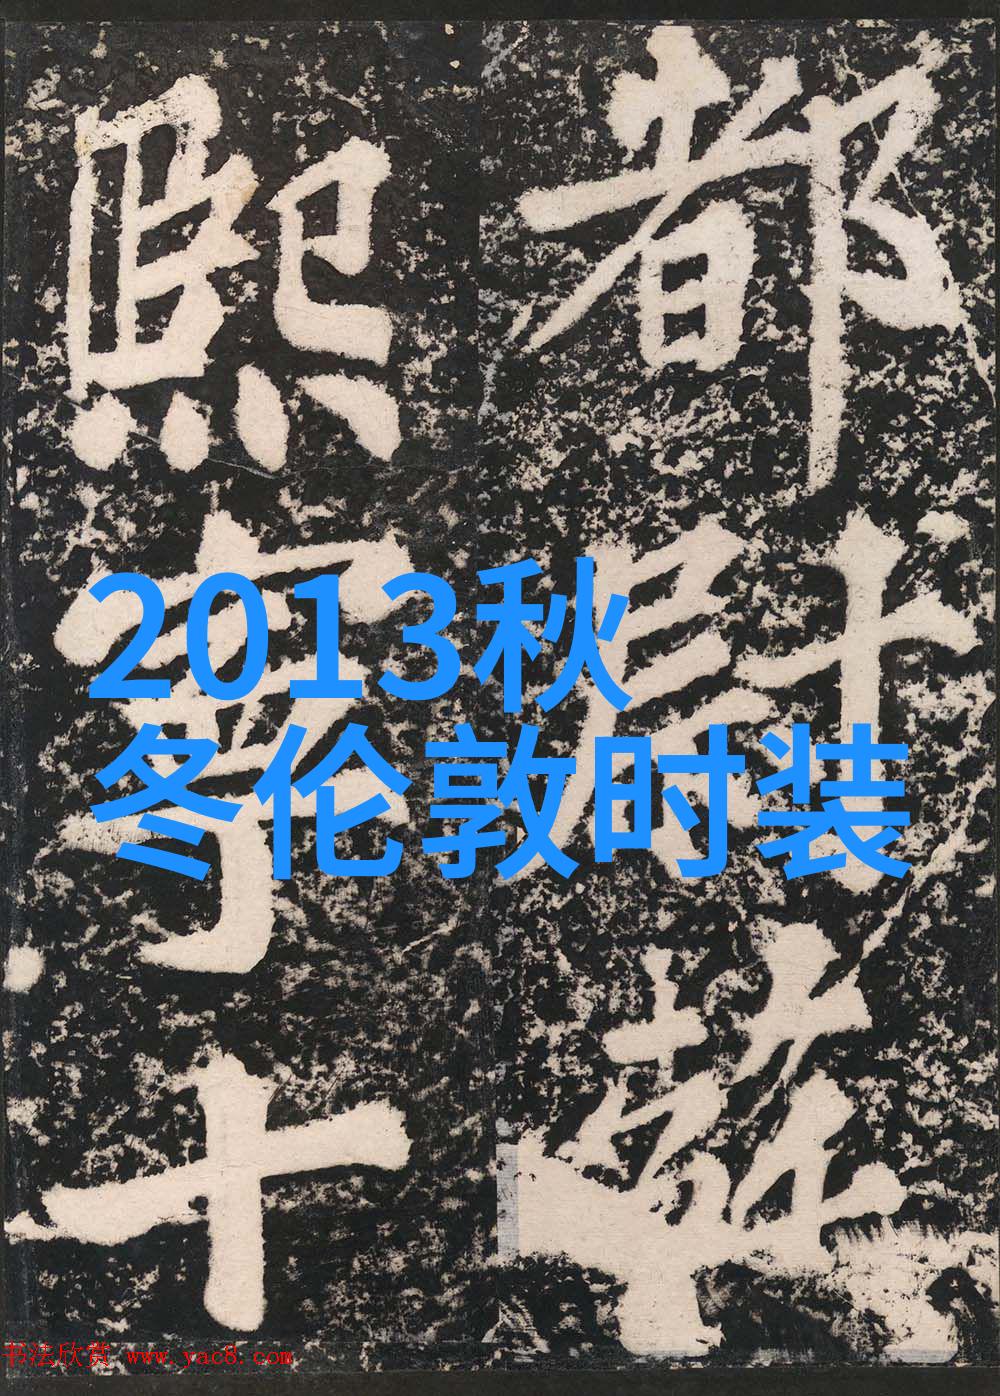 都尉
熙寧十
2013秋
冬伦敦时装
书法欣赏 www.yac8.com